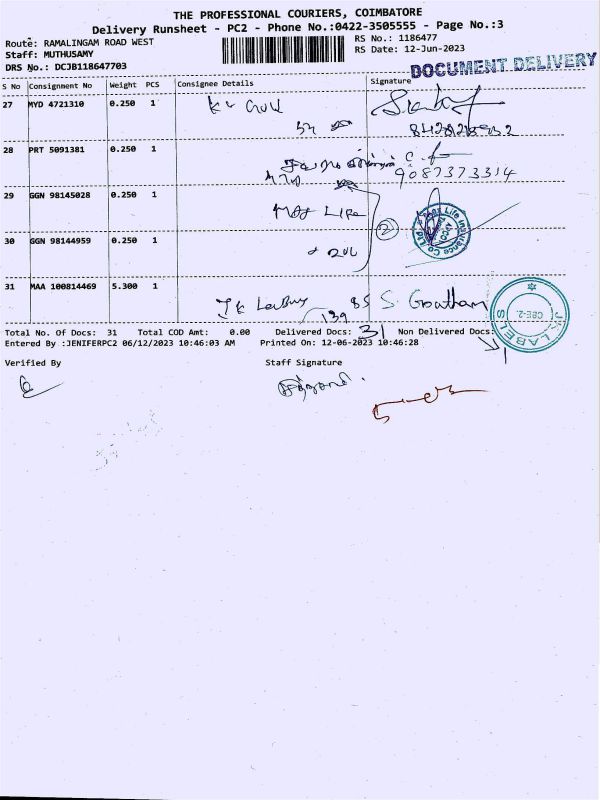 THE PROFESSIONAL COURIERS, COIMBATORE
Delivery Runsheet - PC2 - Phone No.:0422-3505555 - Page No.:3
Route: RAMALINGAM ROAD WEST
RS No.: 1186477
Staff: MUTHUSAMY
RS Date: 12-Jun-2023
DRS No.: DCJB118647703
DOCUMENT DELIVERY
S No Consignment No Weight PCS Consignee Details Signature
27 MYD 4721310 0.250 1
28 PRT 5091381 0.250 1
9087373314
29 GGN 98145028 0.250 1
Max Life
2
30 GGN 98144959 0.250 1
31 MAA 100814469 5.300 1
139 85 S Gowtham
JK LABELS CBE-2.
Total No. Of Docs: 31 Total COD Amt: 0.00 Delivered Docs: 31 Non Delivered Docs:
Entered By :JENIFERPC2 06/12/2023 10:46:03 AM Printed On: 12-06-2023 10:46:28
Verified By Staff Signature